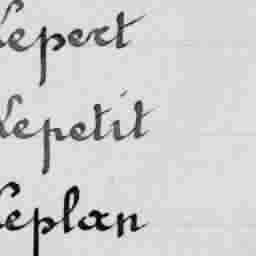 Lepert
Lepetit
Leplan